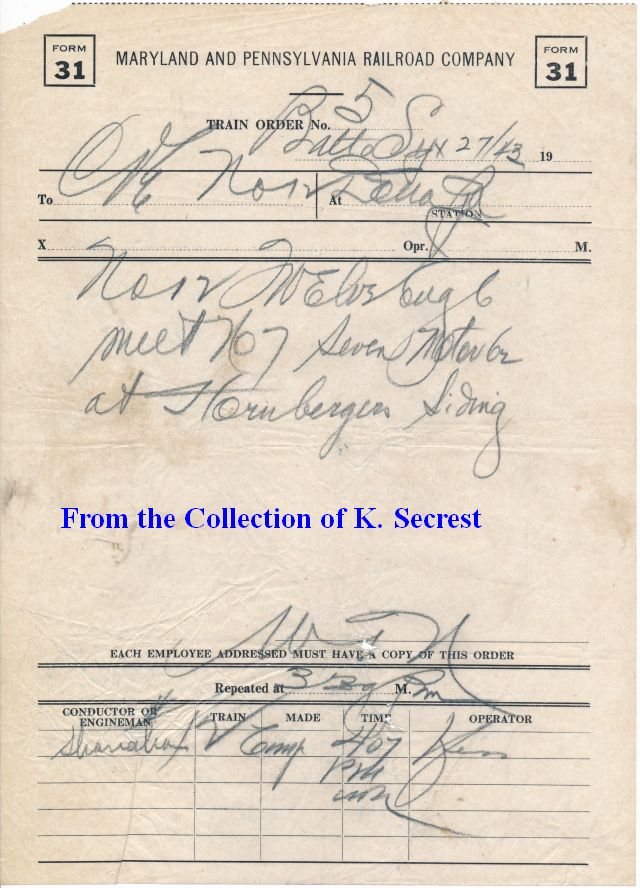 FORM 31
MARYLAND AND PENNSYLVANIA RAILROAD COMPANY
FORM 31
TRAIN ORDER No. 5
Balto 27/43 19
To C&E No 12 At Delta Pa
STATION
X Opr. M.
No 12 Twelve Eng 6
meet No 7 Seven Motor 62
at Hornbergers Siding
From the Collection of K. Secrest
EACH EMPLOYEE ADDRESSED MUST HAVE A COPY OF THIS ORDER
Repeated at 3 39 M. Pm
CONDUCTOR OR ENGINEMAN TRAIN MADE TIME OPERATOR
Shanahan 12 Comp 407
PM